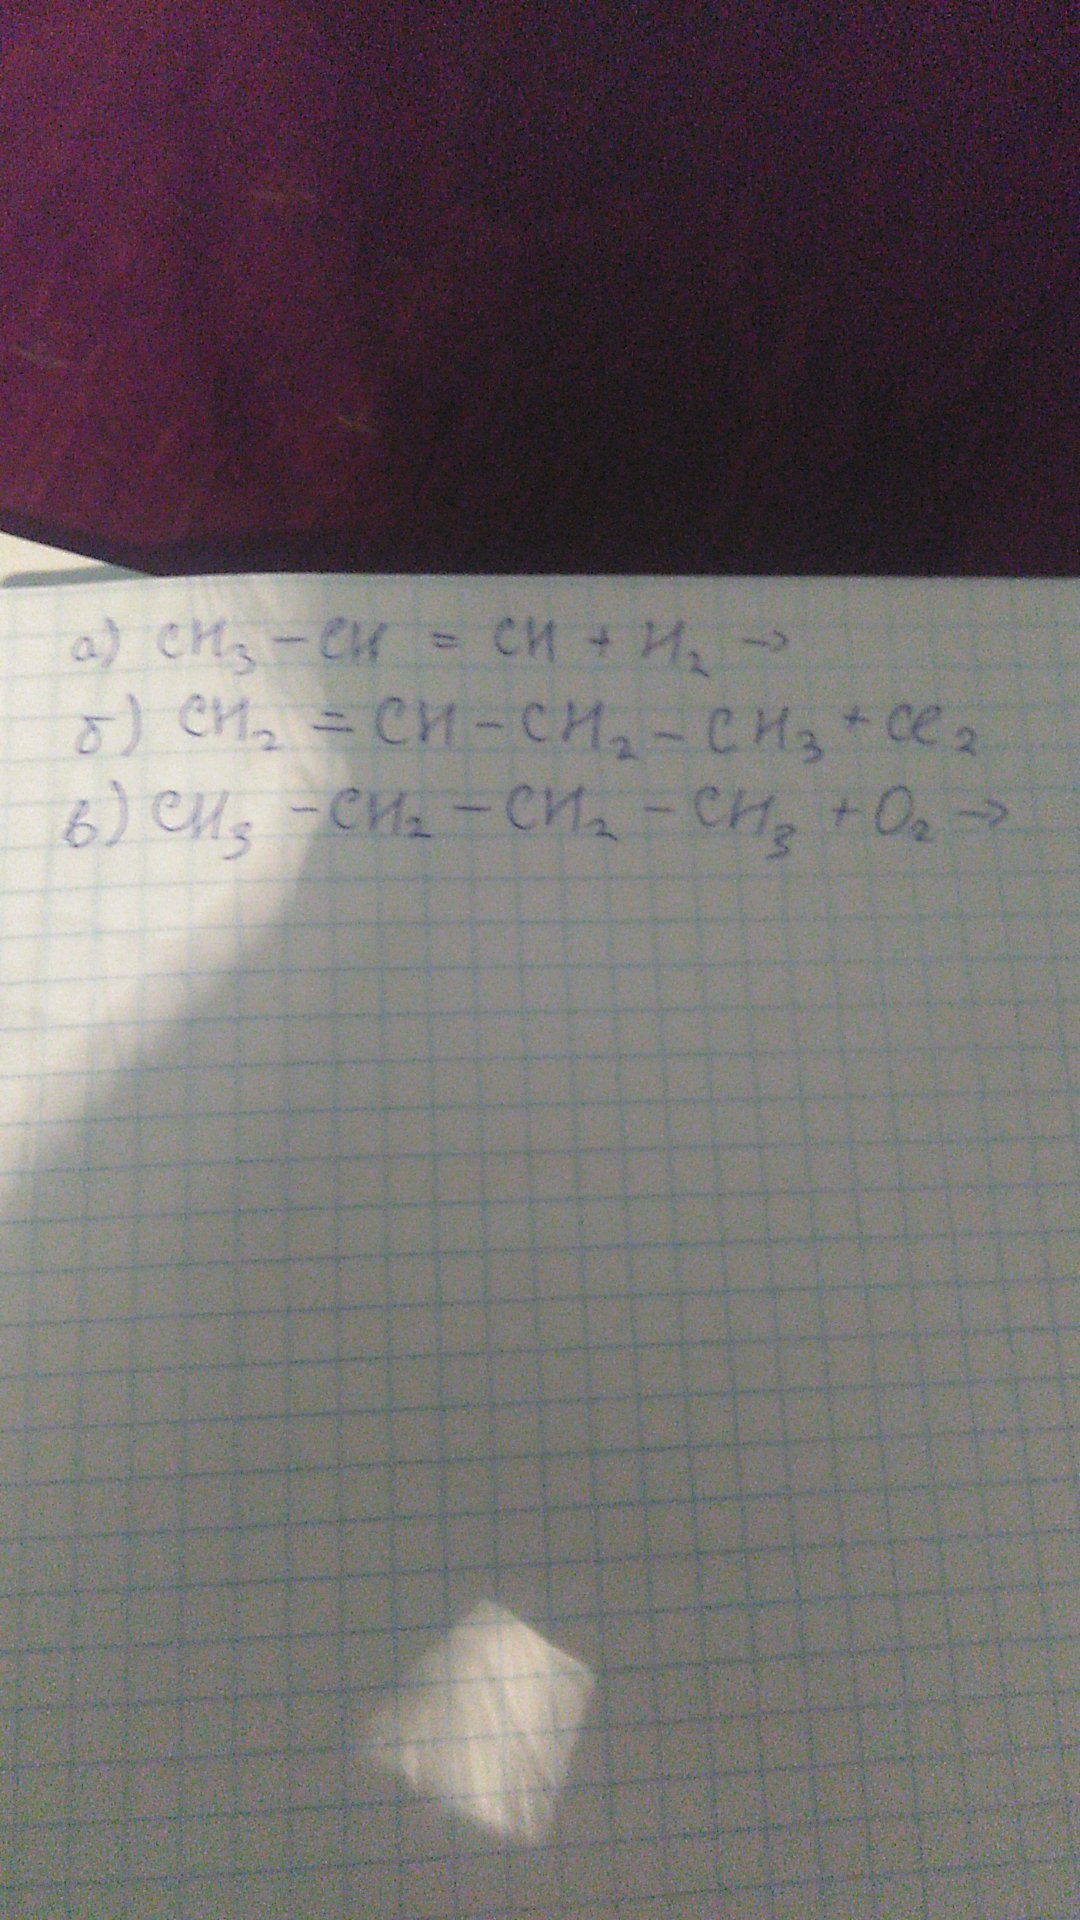 а) CH₃ – CH = CH + H₂ →
б) CH₂ = CH – CH₂ – CH₃ + Cl₂
в) CH₃ – CH₂ – CH₂ – CH₃ + O₂ →